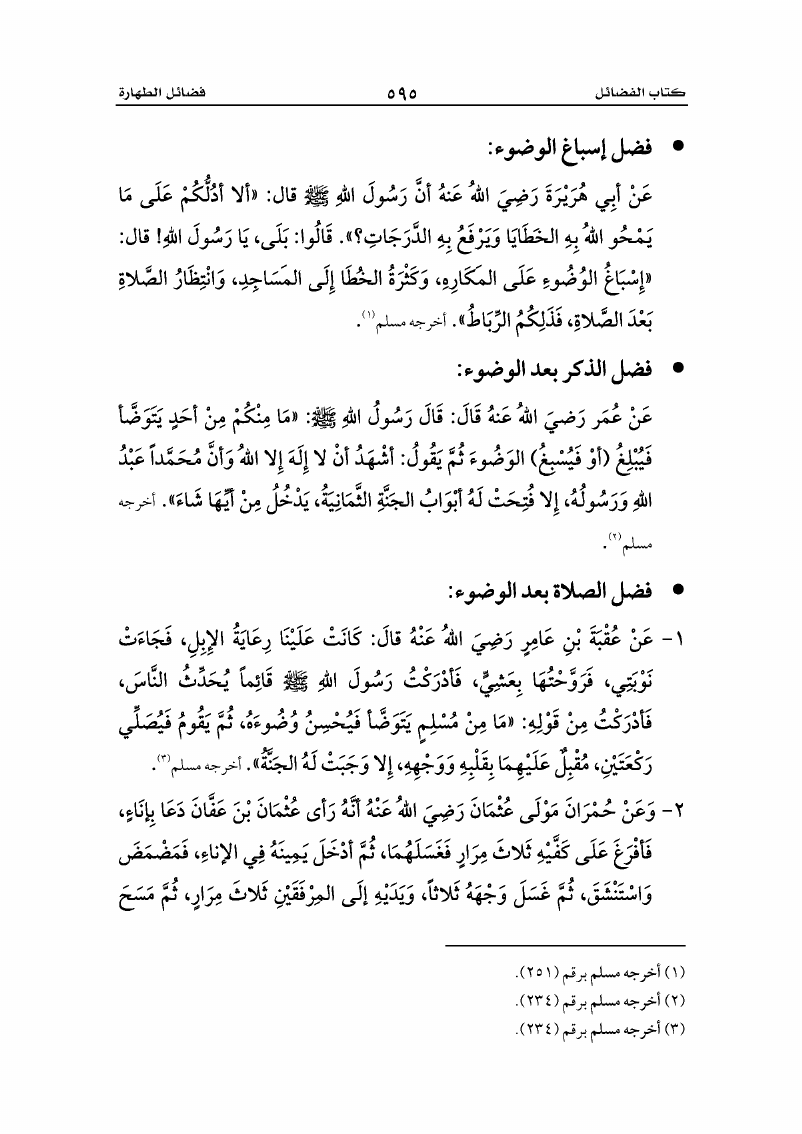 كتاب الفضائل ٥٩٥ فضائل الطهارة
• فضل إسباغ الوضوء:
عَنْ أبِي هُرَيْرَةَ رَضِيَ اللهُ عَنهُ أنَّ رَسُولَ اللهِ ﷺ قال: «ألا أدُلُّكُمْ عَلَى مَا
يَمْحُو اللهُ بِهِ الخَطَايَا وَيَرْفَعُ بِهِ الدَّرَجَاتِ؟». قَالُوا: بَلَى، يَا رَسُولَ اللهِ! قال:
«إسْبَاغُ الوُضُوءِ عَلَى المَكَارِهِ، وَكَثْرَةُ الخُطَا إلَى المَسَاجِدِ، وَانْتِظَارُ الصَّلاةِ
بَعْدَ الصَّلاةِ، فَذَلِكُمُ الرِّبَاطُ». أخرجه مسلم(١).
• فضل الذكر بعد الوضوء:
عَنْ عُمَر رَضيَ اللهُ عَنهُ قَالَ: قَالَ رَسُولُ اللهِ ﷺ: «مَا مِنْكُمْ مِنْ أحَدٍ يَتَوَضَّأ
فَيُبْلِغُ (أوْ فَيُسْبِغُ) الوَضُوءَ ثُمَّ يَقُولُ: أشْهَدُ أنْ لا إلَهَ إلا اللهُ وَأنَّ مُحَمَّداً عَبْدُ
اللهِ وَرَسُولُهُ، إلا فُتِحَتْ لَهُ أبْوَابُ الجَنَّةِ الثَّمَانِيَةُ، يَدْخُلُ مِنْ أيِّهَا شَاءَ». أخرجه
مسلم(٢).
• فضل الصلاة بعد الوضوء:
١- عَنْ عُقْبَةَ بْنِ عَامِرٍ رَضِيَ اللهُ عَنْهُ قالَ: كَانَتْ عَلَيْنَا رِعَايَةُ الإبِلِ، فَجَاءَتْ
نَوْبَتِي، فَرَوَّحْتُهَا بِعَشِيٍّ، فَأدْرَكْتُ رَسُولَ اللهِ ﷺ قَائِماً يُحَدِّثُ النَّاسَ،
فَأدْرَكْتُ مِنْ قَوْلِهِ: «مَا مِنْ مُسْلِمٍ يَتَوَضَّأ فَيُحْسِنُ وُضُوءَهُ، ثُمَّ يَقُومُ فَيُصَلِّي
رَكْعَتَيْنِ، مُقْبِلٌ عَلَيْهِمَا بِقَلْبِهِ وَوَجْهِهِ، إلا وَجَبَتْ لَهُ الجَنَّةُ». أخرجه مسلم(٣).
٢- وَعَنْ حُمْرَانَ مَوْلَى عُثْمَانَ رَضِيَ اللهُ عَنْهُ أنَّهُ رَأى عُثْمَانَ بْنَ عَفَّانَ دَعَا بِإنَاءٍ،
فَأفْرَغَ عَلَى كَفَّيْهِ ثَلاثَ مِرَارٍ فَغَسَلَهُمَا، ثُمَّ أدْخَلَ يَمِينَهُ فِي الإنَاءِ، فَمَضْمَضَ
وَاسْتَنْشَقَ، ثُمَّ غَسَلَ وَجْهَهُ ثَلاثاً، وَيَدَيْهِ إلَى المِرْفَقَيْنِ ثَلاثَ مِرَارٍ، ثُمَّ مَسَحَ
(١) أخرجه مسلم برقم (٢٥١).
(٢) أخرجه مسلم برقم (٢٣٤).
(٣) أخرجه مسلم برقم (٢٣٤).